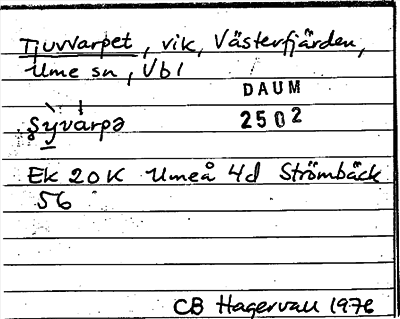 Tjuvvarpet, vik, Västerfjärden,
Ume sn, Vbl
DAUM
2502
Ek 20K Umeå 4d Strömbäck
56
CB Hagervall 1976